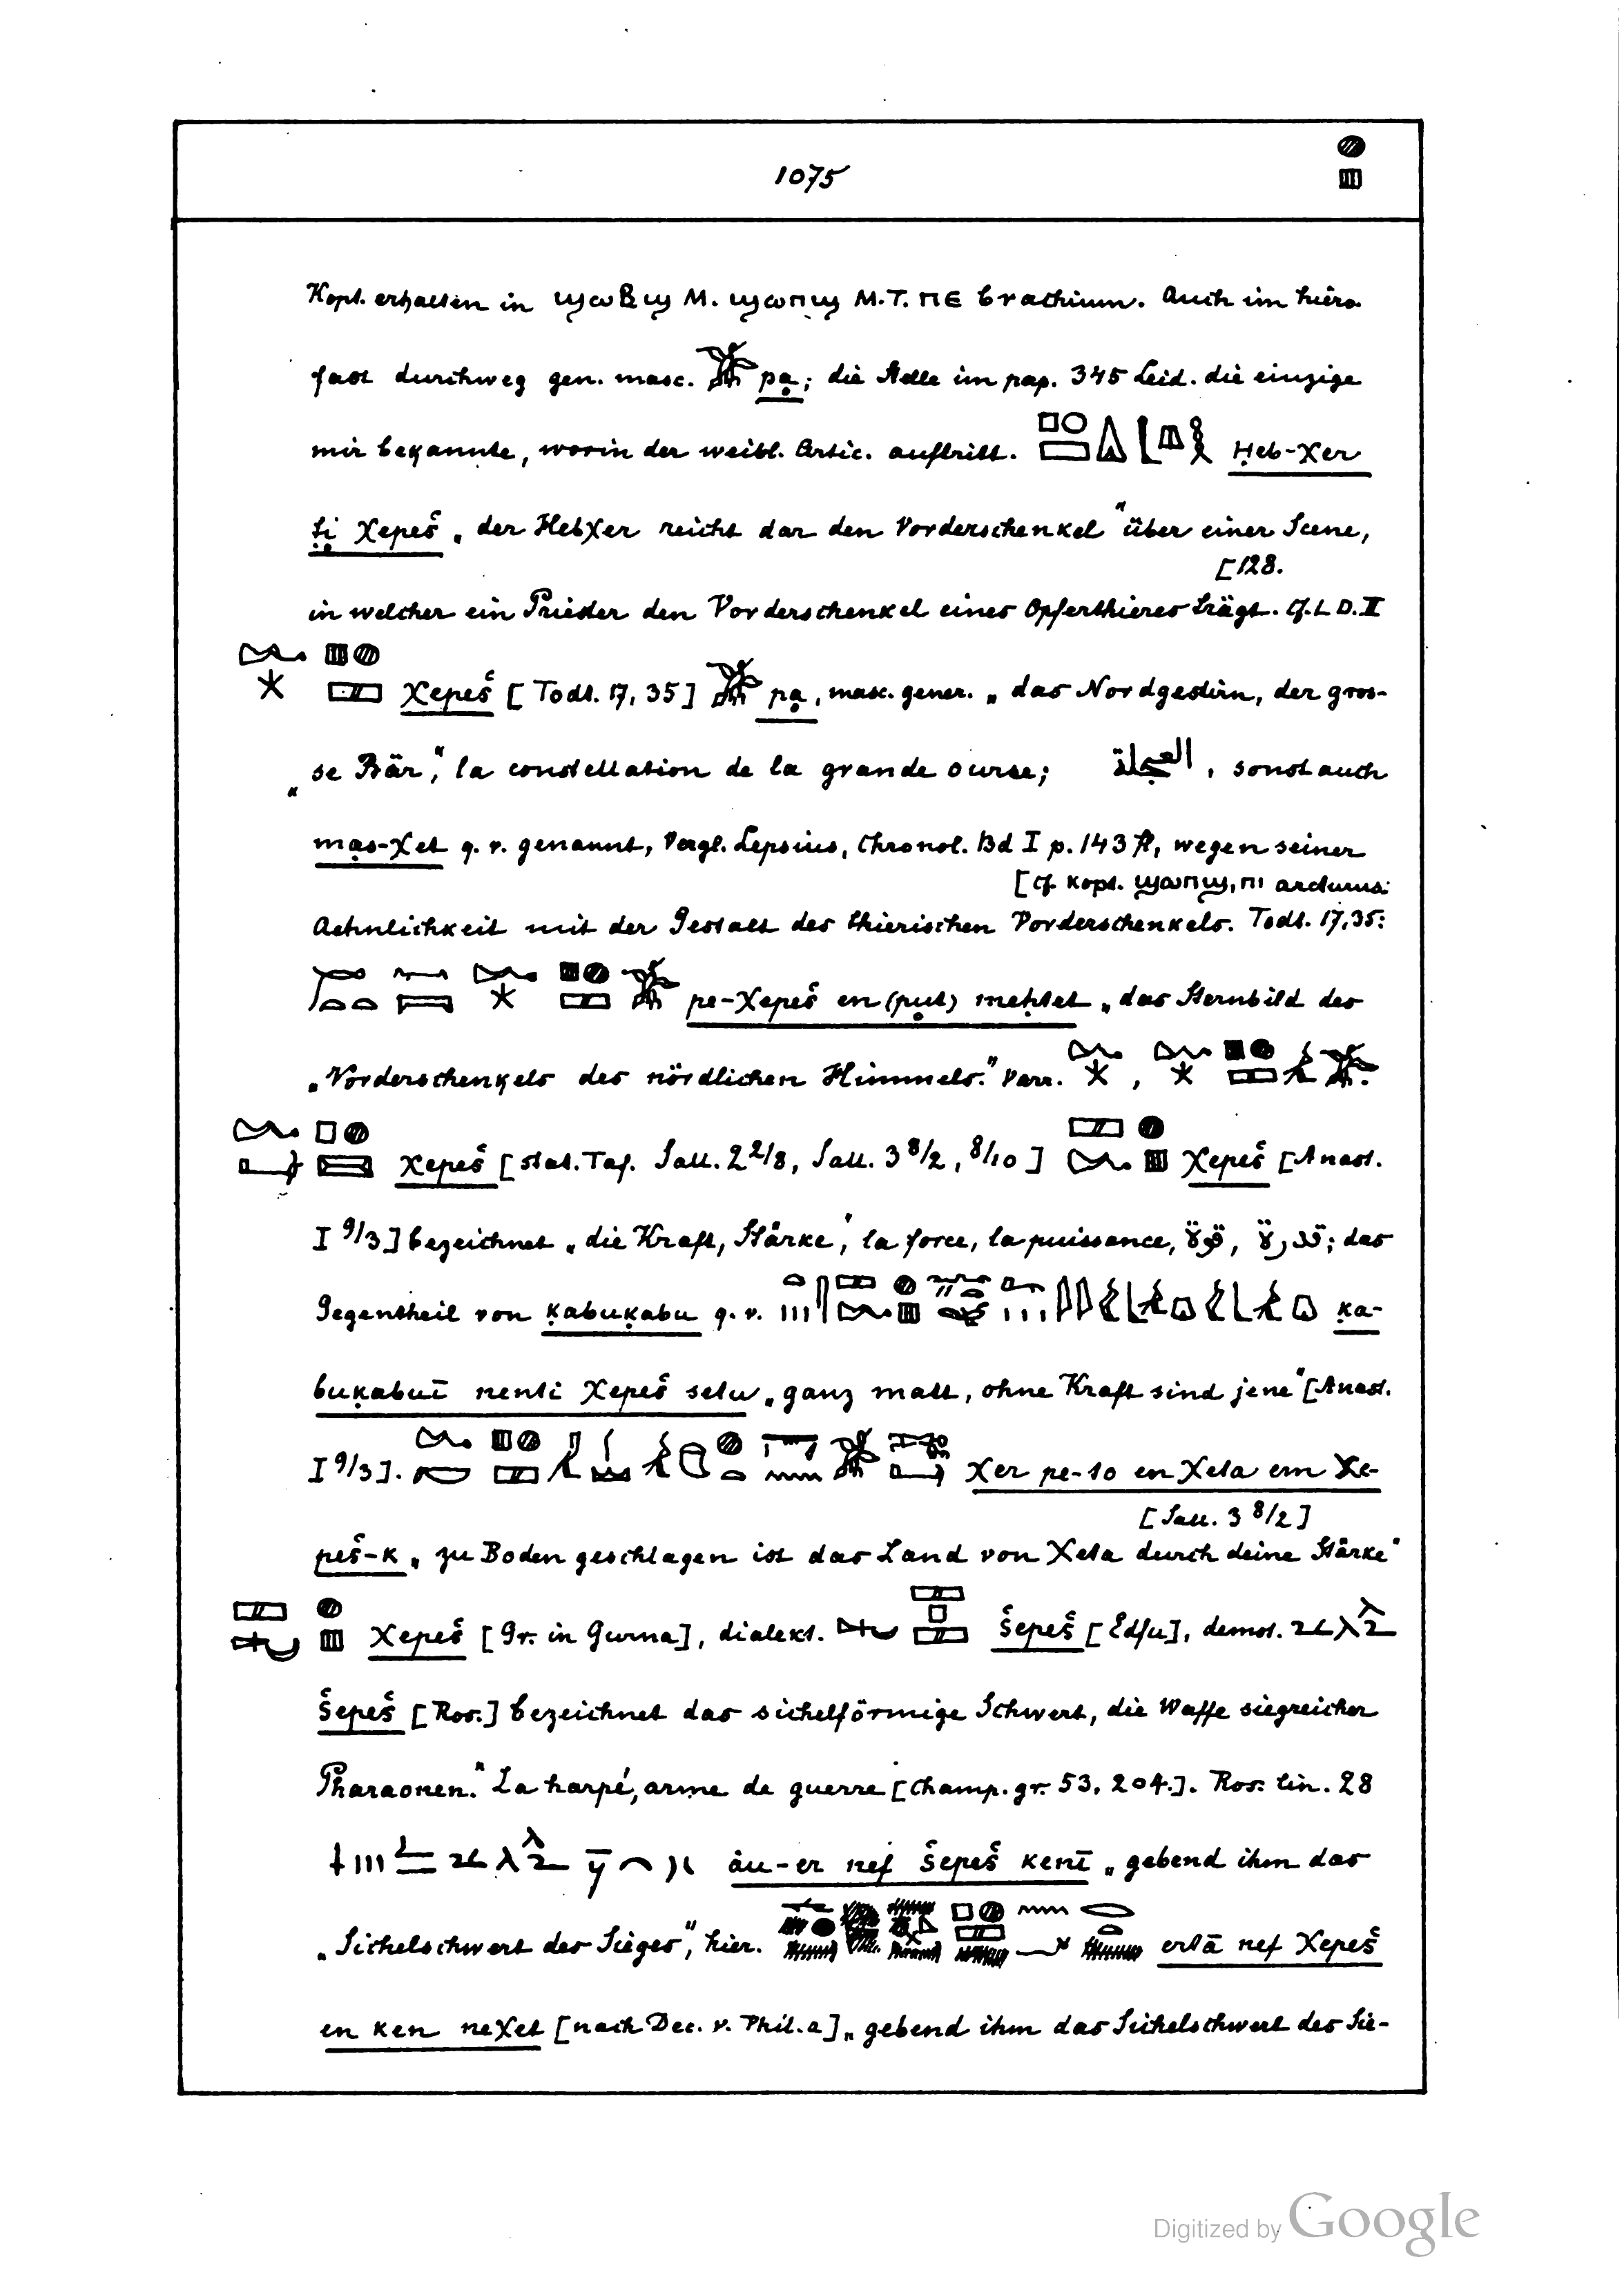 1075
Kopt. erhalten in ϣⲱⲃϣ M. ϣⲱⲡϣ M.T. ⲡⲉ brachium. Auch im hiero.
fast durchweg gen. masc. pa; die Stelle im pap. 345 Leid. die einzige
mir bekannte, worin der weibl. Artic. auftritt. Ḥeb-χer
ti χepeš „der Hebχer reicht dar den Vorderschenkel“ über einer Scene,
[128.
in welcher ein Priester den Vorderschenkel eines Opferthieres trägt. cf. L D. II
χepeš [Todt. 17, 35] pa, masc. gener. „das Nordgestirn, der gros-
„se Bär“, la constellation de la grande ourse; العجلة, sonst auch
mas-χet q. v. genannt, Vergl. Lepsius, Chronol. Bd I p. 143 ff, wegen seiner
[cf kopt. ϣⲱⲡϣ, ⲡⲓ arcturus.
Aehnlichkeit mit der Gestalt des thierischen Vorderschenkels. Todt. 17,35:
pe-χepeš en (put) meḥtet „das Sternbild des
„Vorderschenkels des nördlichen Himmels.“ Varr. ,
χepeš [stat. Taf. Sall. 2 2/8, Sall. 3 8/2, 8/10] χepeš [Anast.
I 9/3] bezeichnet „die Kraft, Stärke“, la force, la puissance, قوّة, قدرة; das
Gegentheil von ḳabuḳabu q. v. ḳa-
buḳabuī nenti χepeš setu „ganz matt, ohne Kraft sind jene“ [Anast.
I 9/3]. χer pe-to en χeta em χe-
[Sall. 3 8/2]
peš-k „zu Boden geschlagen ist das Land von χeta durch deine Stärke“
χepeš [Gr. in Gurna], dialekt. šepeš [Edfu], demot.
šepeš [Ros.] bezeichnet das sichelförmige Schwert, die Waffe siegreicher
Pharaonen.“ La harpé, arme de guerre [Champ. gr. 53, 204.]. Ros. lin. 28
åu-er nef šepeš kenī „gebend ihm das
„Sichelschwert des Sieges“, hier. ertā nef χepeš
en ken neχet [nach Dec. v. Phil. a] „gebend ihm das Sichelschwert des Sie-
Digitized by Google